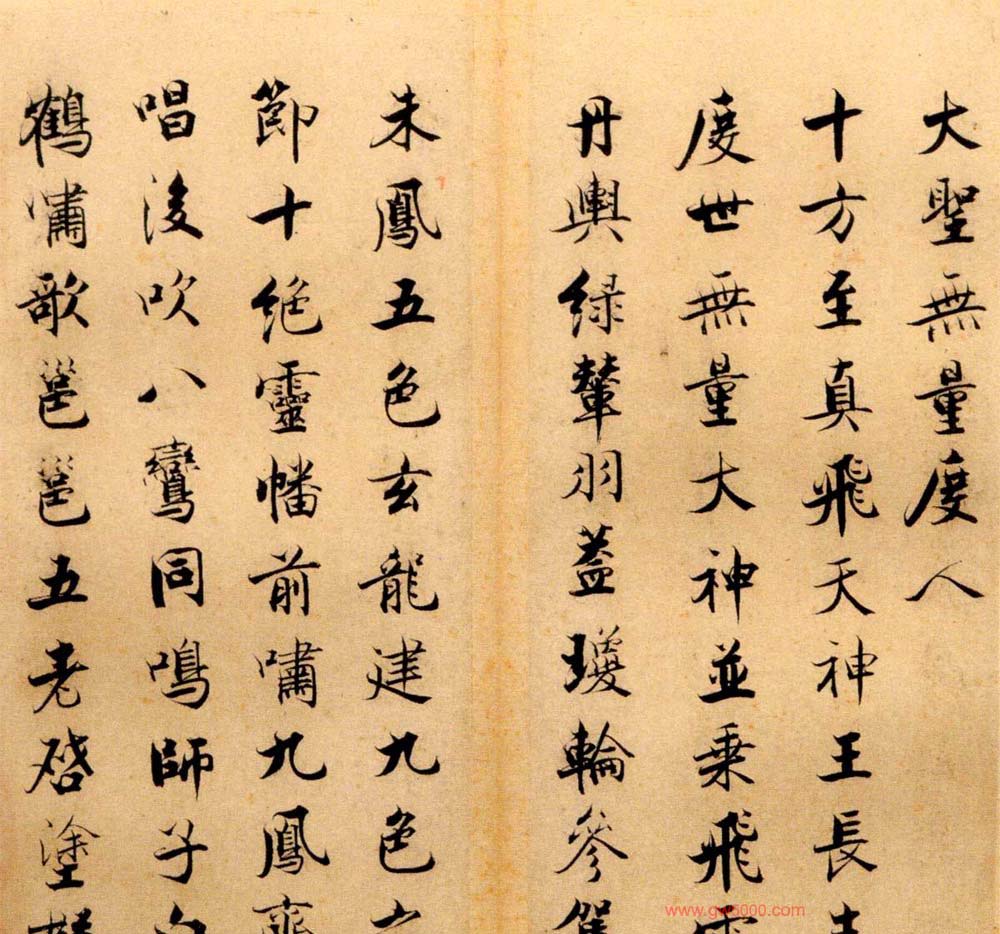 大聖無量度人
十方至真飛天神王長
度世無量大神並乗飛
丹輿緑輦羽盖瓊輪參
朱鳳五色玄龍建九色
節十絶靈幡前嘯九鳳
唱後吹八鸞同鳴師子
鶴嘯歌邕邕五老啓塗
www.gw5000.com